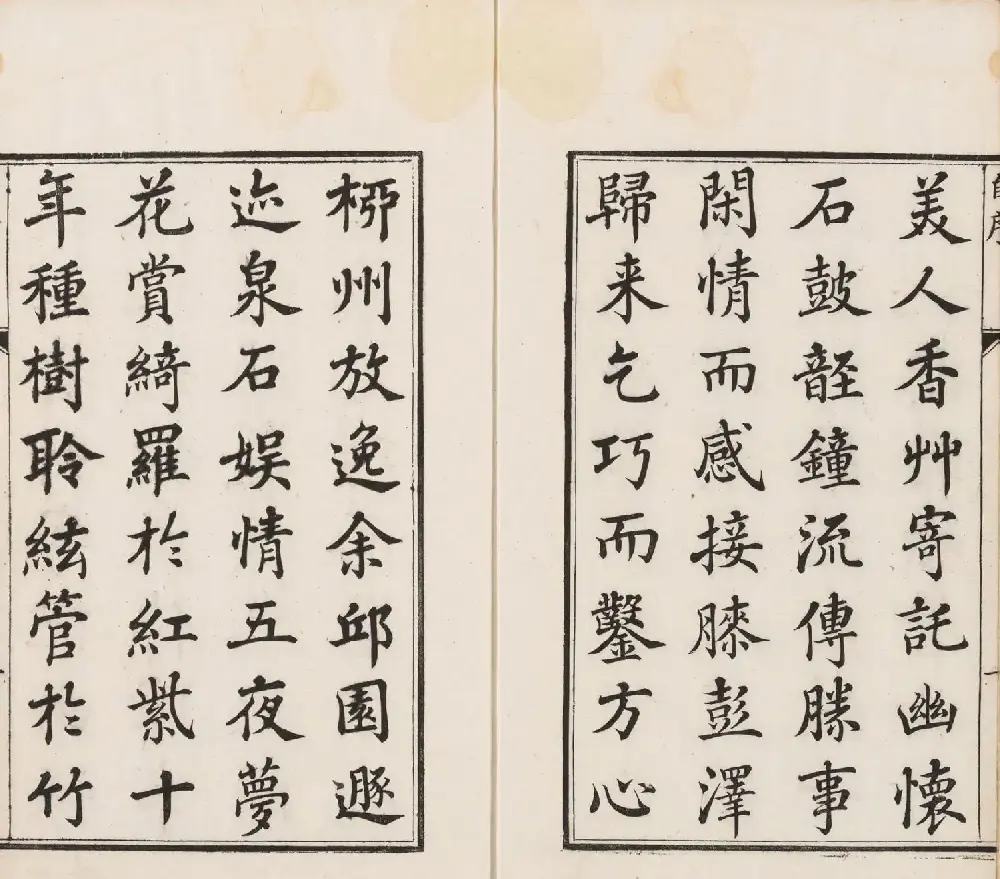 自序
美人香艸寄託幽懷
石鼓鐘流傳勝事
閑情而感接膝彭澤
歸来乞巧而鑿方心
柳州放逸余邱園遯
迹泉石娱情五夜夢
花賞綺羅於紅紫十
年種樹聆絃管於竹